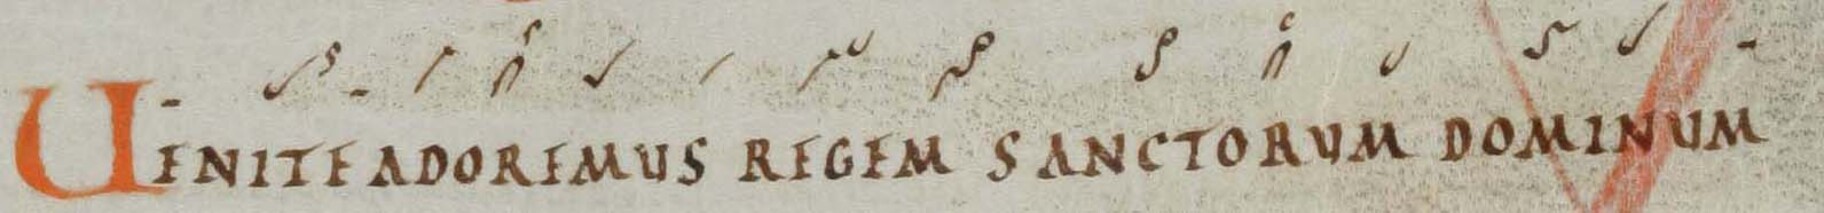 UENITE ADOREMUS REGEM SANCTORUM DOMINUM